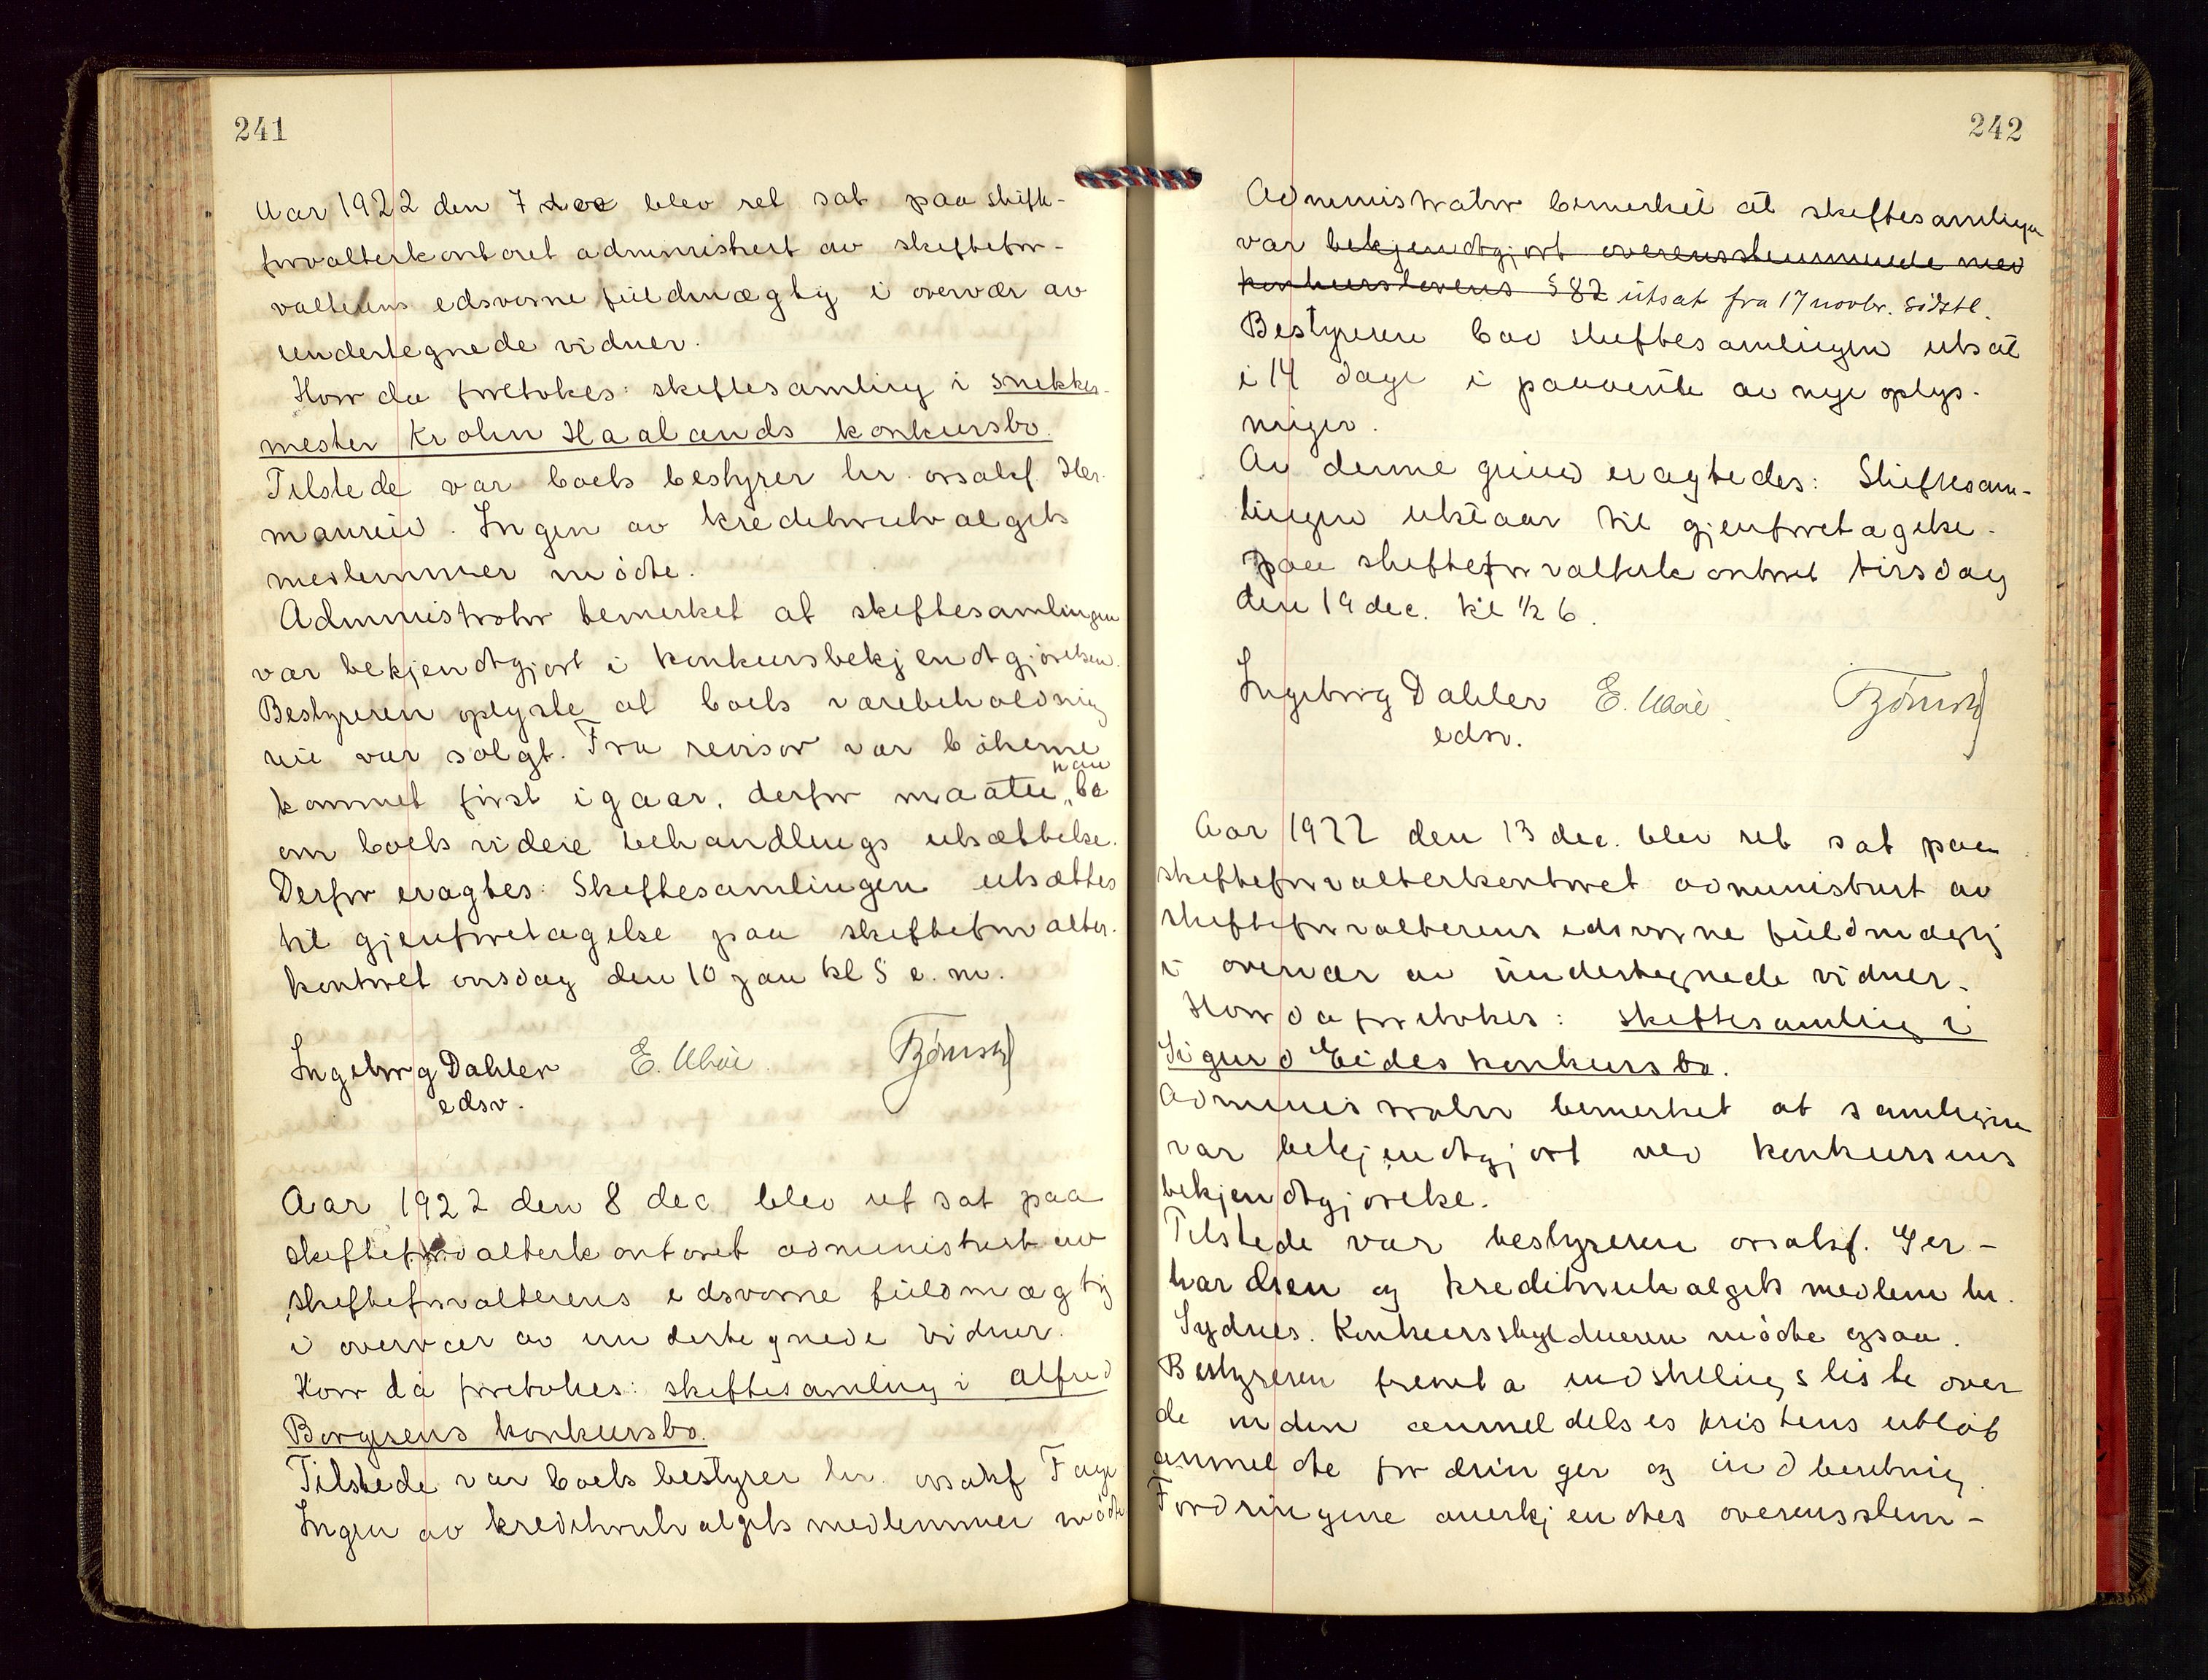 241
Aar 1922 den 7 dec blev ret sat paa skifte-
forvalterkontoret administrert av skiftefor-
valterens edsvorne fuldmægtig i overvær av
undertegnede vidner.
Hvor da foretokes: skiftesamling i snekker-
mester Krohn Haalands konkursbo.
Tilstede var boets bestyrer hr. orsakf. Her-
manrud. Ingen av kreditorutvalgets
medlemmer mödte.
Administrator bemerket at skiftesamlingen
var bekjendtgjort i konkursbekjendtgjörelsen.
Bestyreren oplyste at boets varebeholdning
nu var solgt. Fra revisor var bökerne
kommet först igaar, derfor maatte han be
om boets videre behandlings utsættelse.
Derfor eragtes: Skiftesamlingen utsættes
til gjenforetagelse paa skifteforvalter-
kontoret onsdag den 10 jan kl 5 e.m.
Ingeborg Dahler E.
edsv.
Aar 1922 den 8 dec blev ret sat paa
skifteforvalterkontoret administrert av
skifteforvalterens edsvorne fuldmægtig
i overvær av undertegnede vidner.
Hvor da foretokes: skiftesamling i Alfred
Borgrens konkursbo.
Tilstede var boets bestyrer hr. orsakf
Ingen av kreditorutvalgets medlemmer mödte
242
Administrator bemerket at skiftesamlingen
var bekjendtgjort overensstemmende med
konkurslovens § 82 utsat fra 17 novbr. sidstl.
Bestyreren bad skiftesamlingen utsat
i 14 dage i paavente av nye oplys-
ninger.
Av denne grund eragtedes: Skiftesam-
lingen utstaar til gjenforetagelse
paa skifteforvalterkontoret tirsdag
den 19 dec. kl 1/2 6.
Ingeborg Dahler E.
edsv.
Aar 1922 den 13 dec. blev ret sat paa
skifteforvalterkontoret administrert av
skifteforvalterens edsvorne fuldmægtig
i overvær av undertegnede vidner.
Hvor da foretokes: skiftesamling i
Sigurd Eides konkursbo.
Administrator bemerket at samlingen
var bekjendtgjort ved konkursens
bekjendtgjörelse.
Tilstede var bestyreren orsakf. Ger-
hardsen og kreditorutvalgets medlem hr.
Sydnes. Konkursskyldneren mödte ogsaa.
Bestyreren fremla indstillingsliste over
de inden anmeldelsesfristens utlöb
anmeldte fordringer og indberetning.
Fordringene anerkjendtes overensstem-